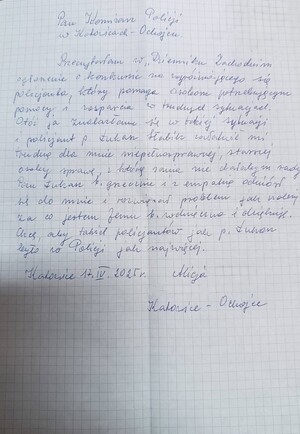 Pan Komisarz Policji
w Katowicach - Ochojcu
Przeczytałam w „Dzienniku Zachodnim
ogłoszenie o konkursie na wyróżniającego się
policjanta, który pomaga osobom potrzebującym
pomocy i wsparcia w trudnych sytuacjach.
Otóż ja znalazłam się w takiej sytuacji
i policjant p. Łukasz załatwił mi
trudną dla mnie niepełnosprawnej, starszej
osoby sprawę, z którą sama nie dałabym rady
Pan Łukasz b. grzecznie i z empatią odniósł
się do mnie i rozwiązał problem jak należy
za co jestem Jemu b. wdzięczna i dziękuję.
Chcę, aby takich policjantów jak p. Łukasz
było w Policji jak najwięcej.
Katowice 17.IV. 2025 r. Alicja
Katowice - Ochojec